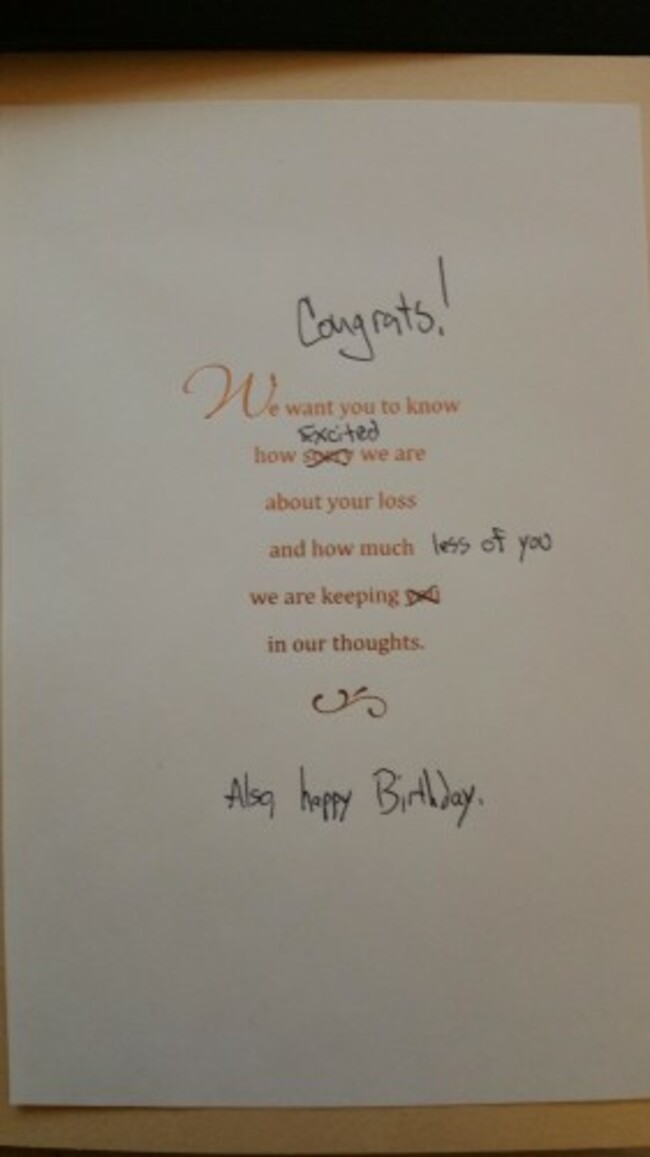 Congrats!
We want you to know
Excited
how sorry we are
about your loss
and how much less of you
we are keeping you
in our thoughts.
Also happy Birthday.